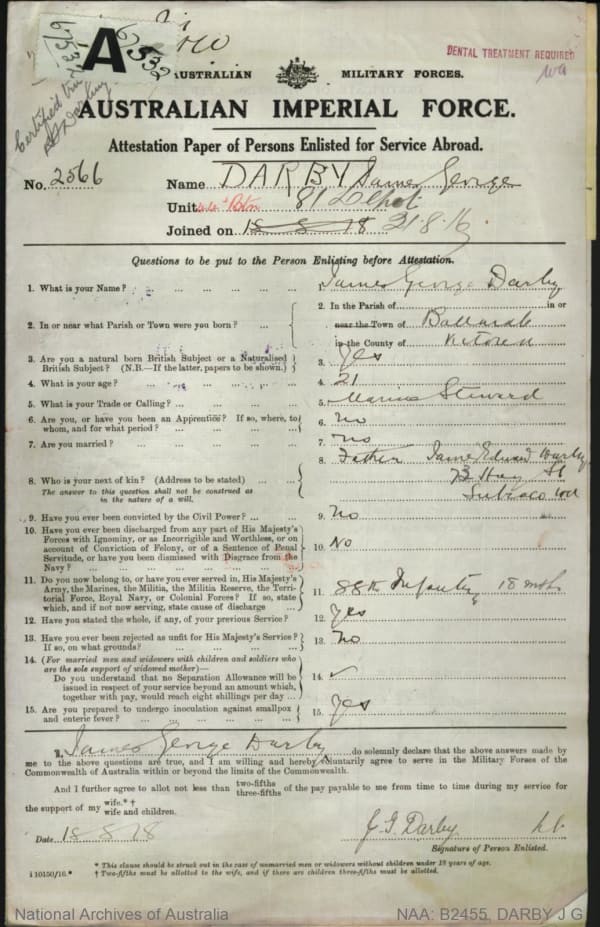 A
6532
DENTAL TREATMENT REQUIRED
Certified true
AUSTRALIAN MILITARY FORCES.
AUSTRALIAN IMPERIAL FORCE.
Attestation Paper of Persons Enlisted for Service Abroad.
No. 2566 Name DARBY James George
Unit 81 Depot
Joined on 18-8-18 21.8.16
Questions to be put to the Person Enlisting before Attestation.
1. What is your Name? ... 1. James George Darby
2. In or near what Parish or Town were you born? ... 2. In the Parish of in or
near the Town of Ballarat
in the County of Victoria
3. Are you a natural born British Subject or a Naturalised
British Subject? (N.B.—If the latter, papers to be shown.) 3. Yes
4. What is your age? ... 4. 21
5. What is your Trade or Calling? ... 5. Marine Steward
6. Are you, or have you been an Apprentice? If so, where, to
whom, and for what period? ... 6. No
7. Are you married? ... 7. No
8. Who is your next of kin? (Address to be stated) ... 8. Father James Edward Darby
73 Hay St
Subiaco WA
The answer to this question shall not be construed as
in the nature of a will.
9. Have you ever been convicted by the Civil Power? ... 9. No
10. Have you ever been discharged from any part of His Majesty's
Forces with Ignominy, or as Incorrigible and Worthless, or on
account of Conviction of Felony, or of a Sentence of Penal
Servitude, or have you been Dismissed with Disgrace from the
Navy? ... 10. No
11. Do you now belong to, or have you ever served in, His Majesty's
Army, the Marines, the Militia, the Militia Reserve, the Terri-
torial Force, Royal Navy, or Colonial Forces? If so, state
which, and if not now serving, state cause of discharge ... 11. 88th Infantry 18 mths
12. Have you stated the whole, if any, of your previous Service? 12. Yes
13. Have you ever been rejected as unfit for His Majesty's Service?
If so, on what grounds? ... 13. No
14. (For married men and widowers with children and soldiers who
are the sole support of widowed mother)—
Do you understand that no Separation Allowance will be
issued in respect of your service beyond an amount which,
together with pay, would reach eight shillings per day ... 14. ✓
15. Are you prepared to undergo inoculation against smallpox
and enteric fever? ... 15. Yes
I, James George Darby do solemnly declare that the above answers made by
me to the above questions are true, and I am willing and hereby voluntarily agree to serve in the Military Forces of the
Commonwealth of Australia within or beyond the limits of the Commonwealth.
And I further agree to allot not less than two-fifths three-fifths of the pay payable to me from time to time during my service for
the support of my wife.*† wife and children.
Date 18-8-18 J. G. Darby
Signature of Person Enlisted.
* This clause should be struck out in the case of unmarried men or widowers without children under 18 years of age.
† Two-fifths must be allotted to the wife, and if there are children three-fifths must be allotted.
10150/16.*
National Archives of Australia NAA: B2455, DARBY J G